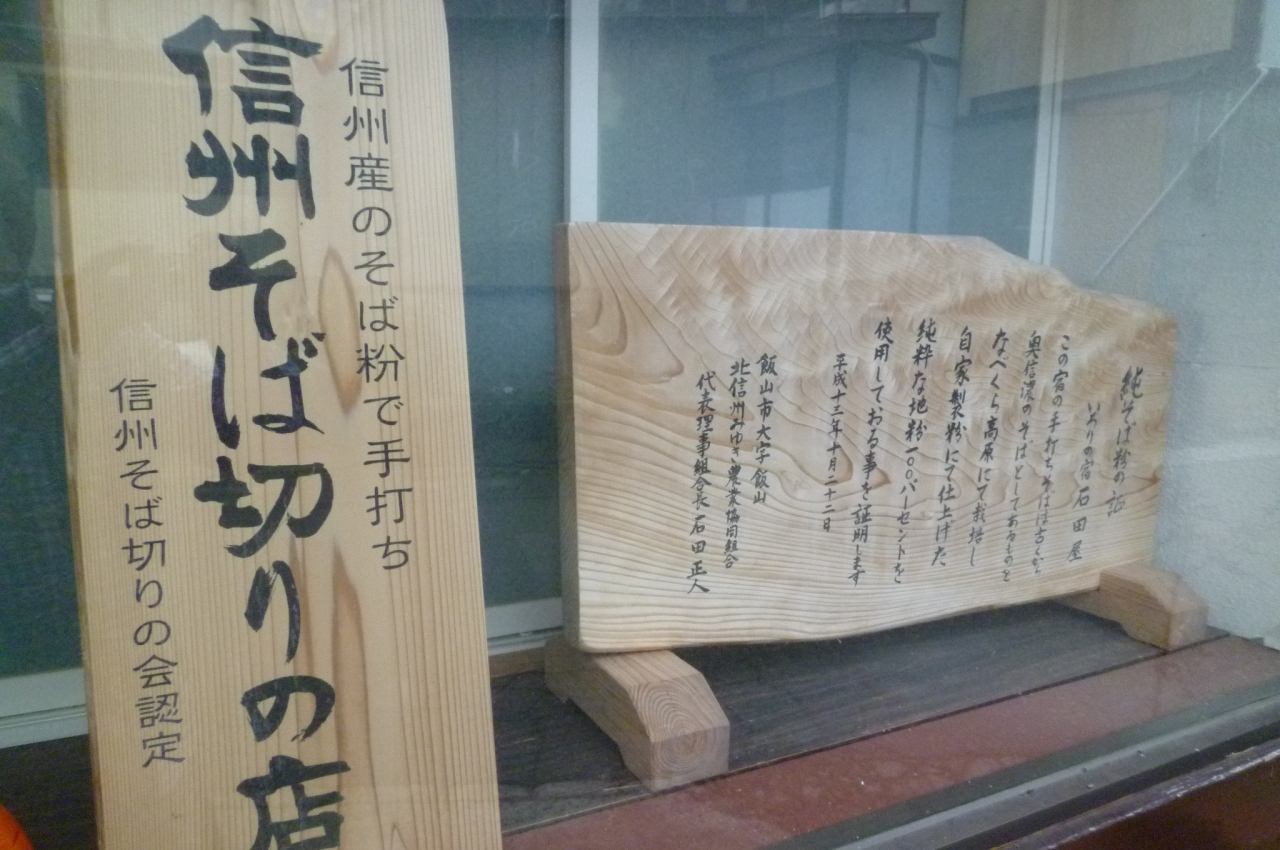 純そば粉の証
いおりの宿 石田屋
この宿の手打ちそばは古くから
奥信濃のそばとしてあるものを
なべくら高原にて栽培し
自家製粉にて仕上げた
純粋な地粉一〇〇パーセントを
使用しておる事を証明します
平成十三年十月二十二日
飯山市大字飯山
北信州みゆき農業協同組合
代表理事組合長 石田正人
信州産のそば粉で手打ち
信州そば切りの店
信州そば切りの会認定